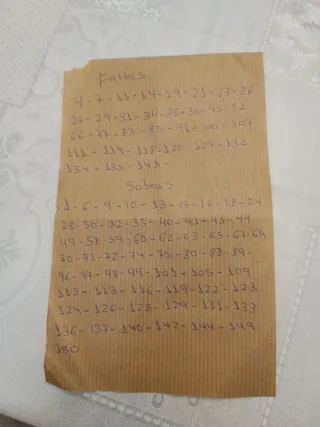 Faltas
4 - 7 - 11 - 14 - 19 - 21 - 23 - 26
27 - 29 - 31 - 34 - 35 - 36 - 45 - 52
66 - 77 - 83 - 85 - 91 - 100 - 107
111 - 114 - 118 - 120 127 - 132
134 - 135 - 143 -
Sobras
1 - 6 - 9 - 10 - 13 - 15 - 16 - 18 - 24
28 - 30 - 32 - 33 - 40 - 41 - 41 - 44
49 - 58 - 59 - 60 - 62 - 63 - 65 - 67 - 69
70 - 71 - 72 - 74 - 75 - 80 - 88 - 89 -
96 - 97 - 98 - 99 - 101 - 105 - 109
112 - 113 - 116 - 119 - 122 - 123
124 - 126 - 128 - 129 - 131 - 133
136 - 137 - 140 - 142 - 144 - 149
150